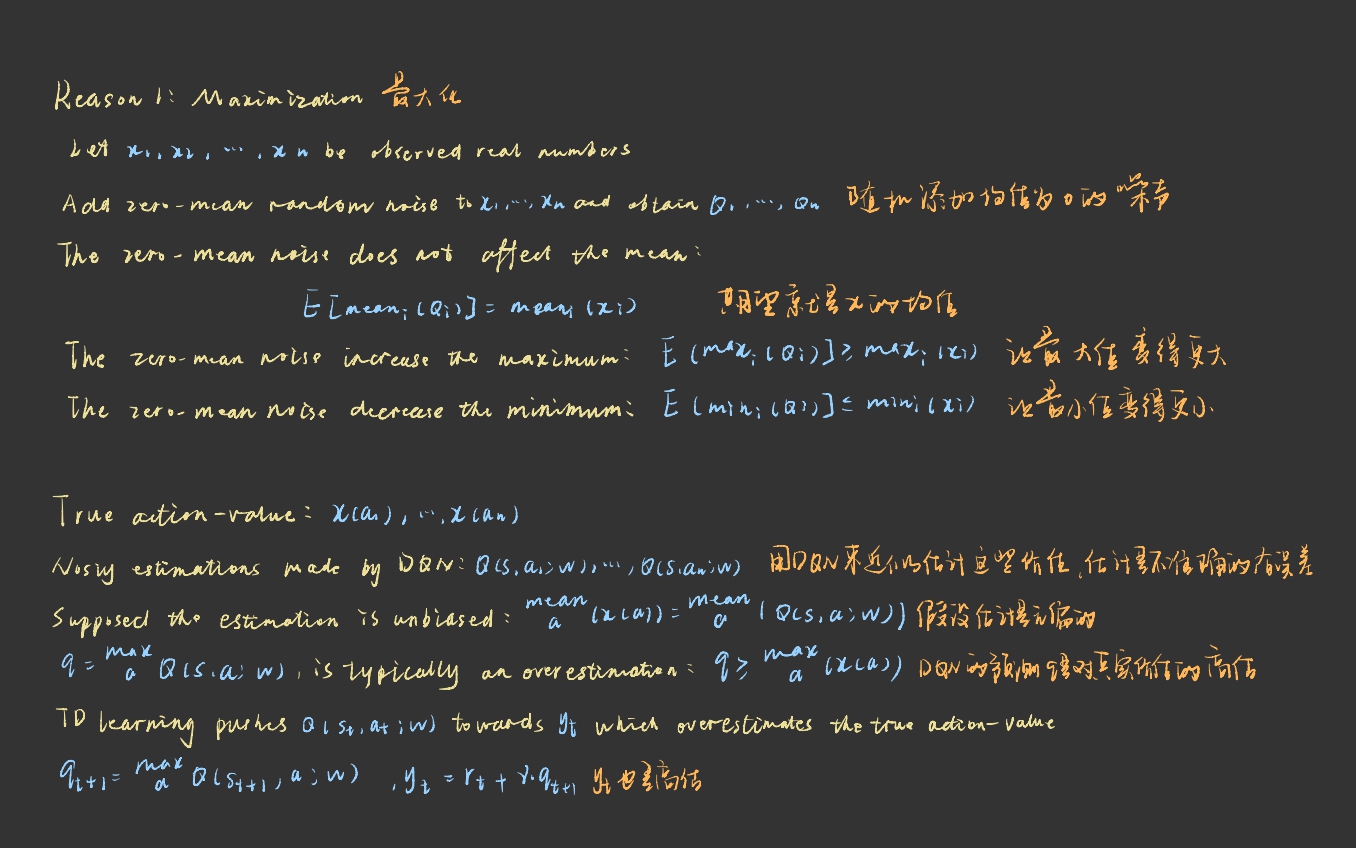 Reason 1: Maximization 最大化
Let x₁, x₂, ⋯, xn be observed real numbers
Add zero-mean random noise to x₁, ⋯, xn and obtain Q₁, ⋯, Qn 随机添加均值为0的噪声
The zero-mean noise does not affect the mean:
E[meanᵢ(Qᵢ)] = meanᵢ(xᵢ) 期望就是x的均值
The zero-mean noise increase the maximum: E(maxᵢ(Qᵢ)] ≥ maxᵢ(xᵢ) 让最大值变得更大
The zero-mean noise decrease the minimum: E(minᵢ(Qᵢ)] ≤ minᵢ(xᵢ) 让最小值变得更小
True action-value: x(a₁), ⋯, x(an)
Nosiy estimations made by DQN: Q(s,a₁;w), ⋯, Q(s,an;w) 用DQN来近似估计这些价值,估计是不准确的有误差
Supposed the estimation is unbiased: mean a (x(a)) = mean a (Q(s,a;w)) 假设估计是无偏的
q = max a Q(s,a;w), is typically an overestimation: q ≥ max a (x(a)) DQN的预测q是对真实价值的高估
TD learning pushes Q(st,at;w) towards yt which overestimates the true action-value
qt+1 = max a Q(st+1,a;w) , yt = rt + γ·qt+1 yt也是高估